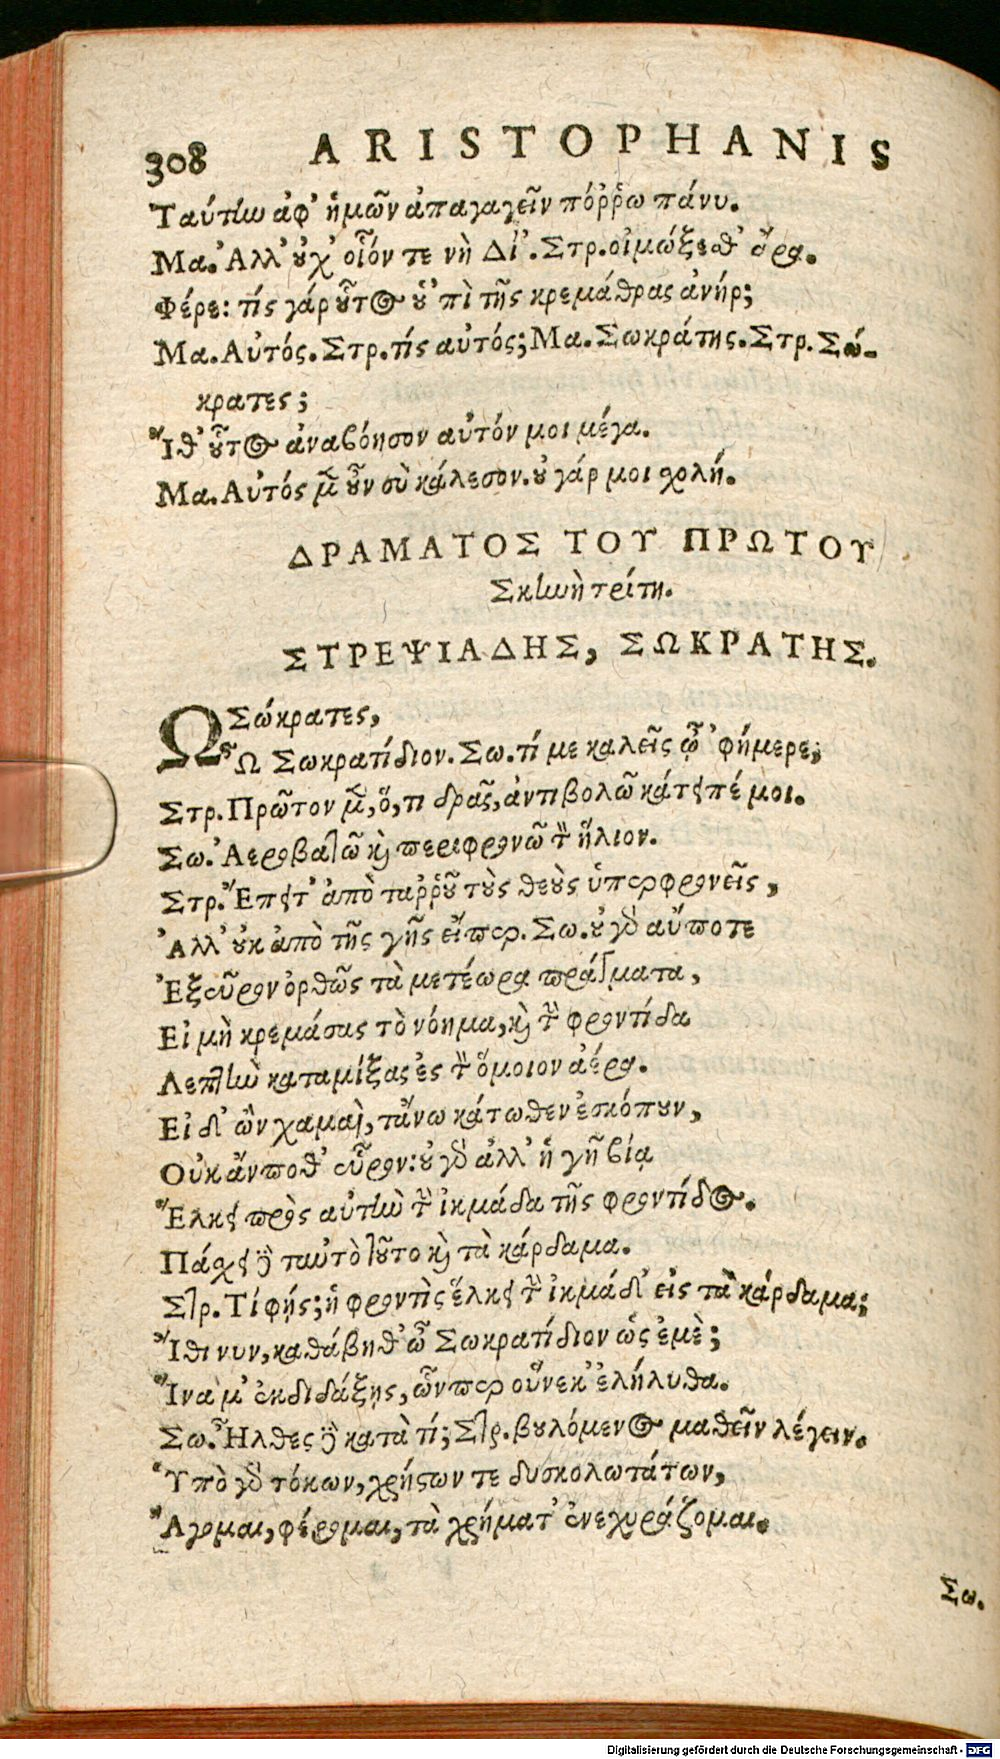 308 ARISTOPHANIS
Ταύτην ἀφ' ἡμῶν ἀπαγαγεῖν πόῤῥω πάνυ.
Μα. Ἀλλ' οὐχ' οἷόν τε νὴ Δί'. Στρ. οἰμώξεσθ' ἄρα.
Φέρε: τίς γάρ οὗτος οὑ 'πὶ τῆς κρεμάθρας ἀνήρ;
Μα. Αὐτός. Στρ. τίς αὐτός; Μα. Σωκράτης. Στρ. Σώ-
κρατες;
Ἴθ' οὗτος ἀναβόησον αὐτόν μοι μέγα.
Μα. Αὐτός μὲν οὖν σὺ κάλεσον. οὐ γάρ μοι σχολή.
ΔΡΑΜΑΤΟΣ ΤΟΥ ΠΡΩΤΟΥ
Σκηνὴ τρίτη.
ΣΤΡΕΨΙΑΔΗΣ, ΣΩΚΡΑΤΗΣ.
Ω Σώκρατες,
Ὦ Σωκρατίδιον. Σω. τί με καλεῖς ὦ 'φήμερε;
Στρ. Πρῶτον μὲν, ὅ, τι δρᾶς, ἀντιβολῶ κάτειπέ μοι.
Σω. Ἀεροβατῶ καὶ περιφρονῶ τὸν ἥλιον.
Στρ. Ἔπειτ' ἀπὸ ταῤῥοῦ τοὺς θεοὺς ὑπερφρονεῖς,
Ἀλλ' οὐκ ἀπὸ τῆς γῆς εἴπερ. Σω. οὐ γὰρ αὔποτε
Ἐξεῦρον ὀρθῶς τὰ μετέωρα πράγματα,
Εἰ μὴ κρεμάσας τὸ νόημα, καὶ τὴν φροντίδα
Λεπτὴν καταμίξας ἐς τὸν ὅμοιον ἀέρα.
Εἰ δ' ὢν χαμαὶ, τἄνω κάτωθεν ἐσκόπουν,
Οὐκ ἄν ποθ' εὗρον: οὐ γὰρ ἀλλ' ἡ γῆ βίᾳ
Ἕλκει πρὸς αὐτὴν τὴν ἰκμάδα τῆς φροντίδος.
Πάσχει δὲ ταὐτὸ τοῦτο καὶ τὰ κάρδαμα.
Στρ. Τί φῄς; ἡ φροντὶς ἕλκει τὴν ἰκμάδ' εἰς τὰ κάρδαμα;
Ἴθι νυν, κατάβηθ' ὦ Σωκρατίδιον ὡς ἐμὲ;
Ἵνα μ' ἐκδιδάξῃς, ὧνπερ οὕνεκ' ἐλήλυθα.
Σω. Ἦλθες δὲ κατὰ τί; Στρ. βουλόμενος μαθεῖν λέγειν.
Ὑπὸ γὰρ τόκων, χρήστων τε δυσκολωτάτων,
Ἄγομαι, φέρομαι, τὰ χρήματ' ἐνεχυράζομαι.
Σω.
Digitalisierung gefördert durch die Deutsche Forschungsgemeinschaft - DFG